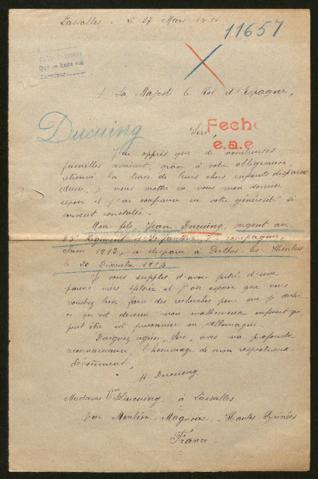 Lassalles, Le 17 Mars
11657
A Sa Majesté le Roi d'Espagne,
Ducuing
Sire,
Fech
e.a.e.
J'ai appris que de nombreuses
familles avaient, grâce à votre obligeance,
retrouvé la trace de leurs chers enfants disparus
je mets en vous mon dernier
espoir et j'ai confiance en votre générosité si
souvent constatée.
Mon fils, Jean Ducuing, sergent au
Régiment d'Infanterie, compagnie,
classe 1912, a disparu à Perthes les Hurlus
le 20 Décembre 1914.
Je vous supplie d'avoir pitié d'une
pauvre mère éplorée et j'ose espérer que vous
voudrez bien faire des recherches pour que je sache
ce qu'est devenu mon malheureux enfant qui
peut être est prisonnier en Allemagne.
Daignez agréer, Sire, avec ma profonde
reconnaissance l'hommage de mon respectueux
dévouement,
Ducuing
Madame Vve Ducuing à Lassalles
par Monléon Magnoac Hautes Pyrénées
France